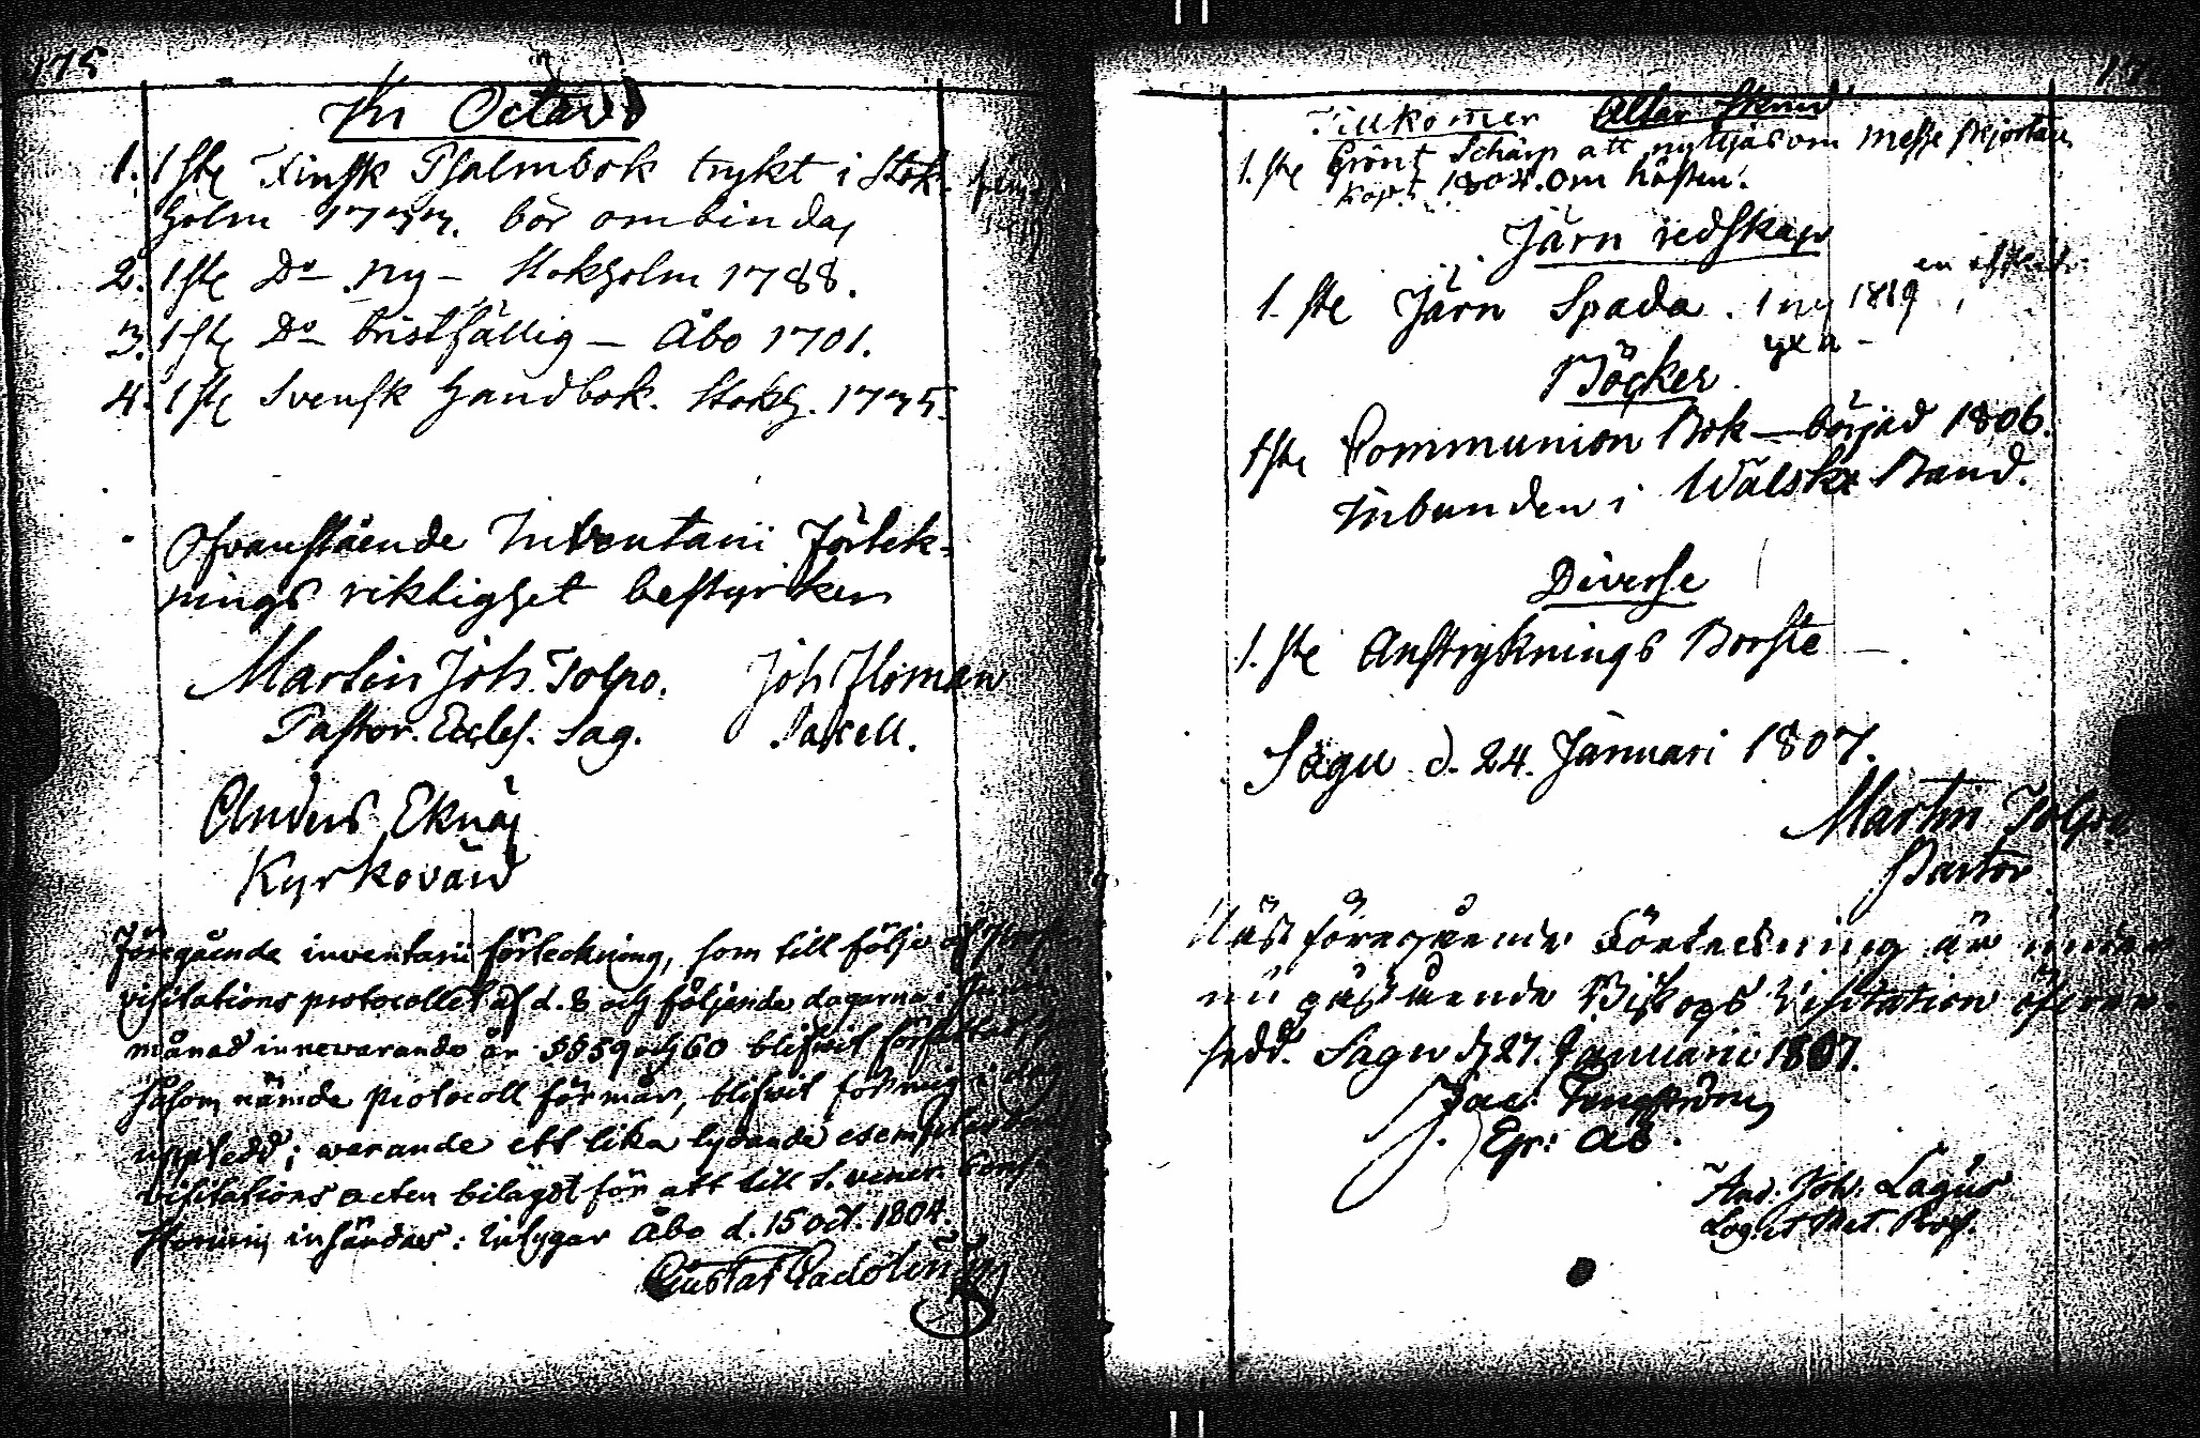 175
In Octavo
1. 1 ste Finsk Psalmbok trykt i Stok-
holm 1733. bör ombindas
2. 1 ste Do ny - Stokholm 1788.
3. 1 ste Do bristfällig - Åbo 1701.
4. 1 ste Svensk Handbok. Stokh. 1735.
Ofvanstående Inventarii Förtek-
nings riktighet bestyrker
Martin Joh. Tolpo. Joh Homan
Pastor. Eccles. Sag. Sacell.
Anders Eknäs
Kyrkovärd
Föregående inventarii förteckning, som till följe af
visitations protocollet af d. 8 och följande dagarna i
månad innevarande år §§ 59 och 60 blifvit författad,
såsom nämde protocoll förmår, blifvit för mig i dag
uppledd; warande ett lika lydande exemplar
visitations acten bilagdt för att till S. vener.
insändas: intygar Åbo d. 15 oct. 1804.
Gustaf Gadolin
Tillkommer Altar Skrud
1. ste Grönt Schärp att nyttjas om Messe skjortan
köpt 1804. om hösten.
Järn redskap
1. ste Järn Spada. 1 ny 1819
yxa -
Böcker
1 ste Communion Bok - börjad 1806.
inbunden i Wälskt Band.
Diverse
1. ste Anstryknings Borste -
Sagu d. 24. Januari 1807.
Martin Tolpo
Pastor
Näst föregående Förteckning är under
nu påstående Biskops Visitation öfver-
sedd. Sagu d 27. Januarii 1807.
Jac. Tengström
Ep: Ab.
And: Joh: Lagus
Log. et Met. Prof.